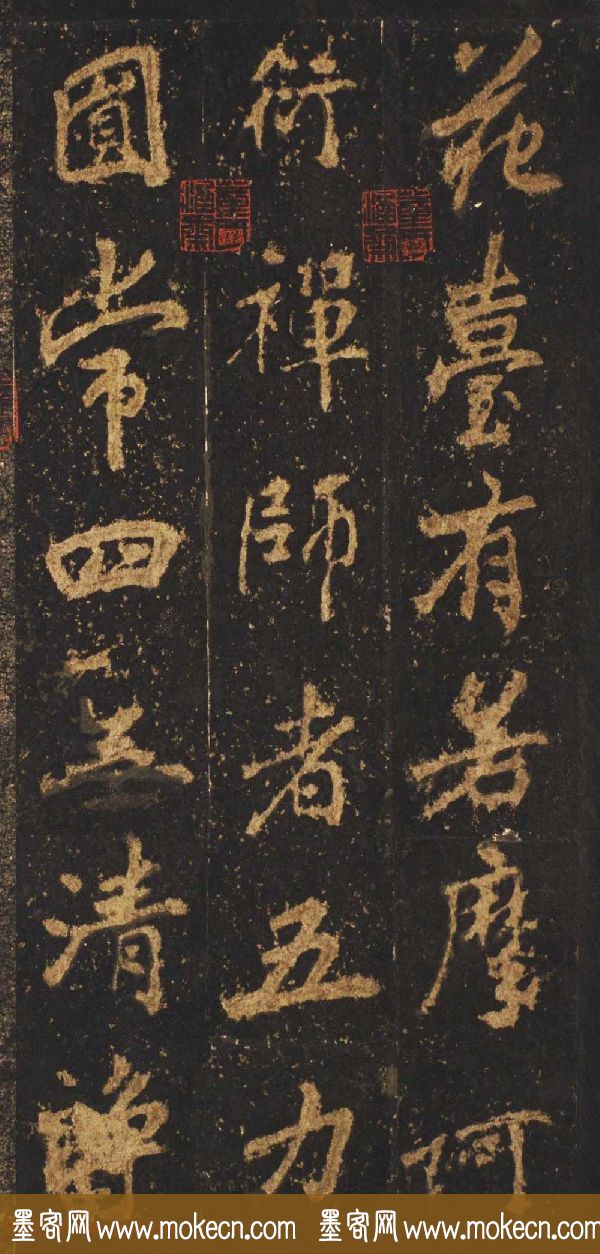 花臺有若摩阿
衍禪師者五力
圓常四清
墨客网 www.mokecn.com 墨客网 www.mokecn.com